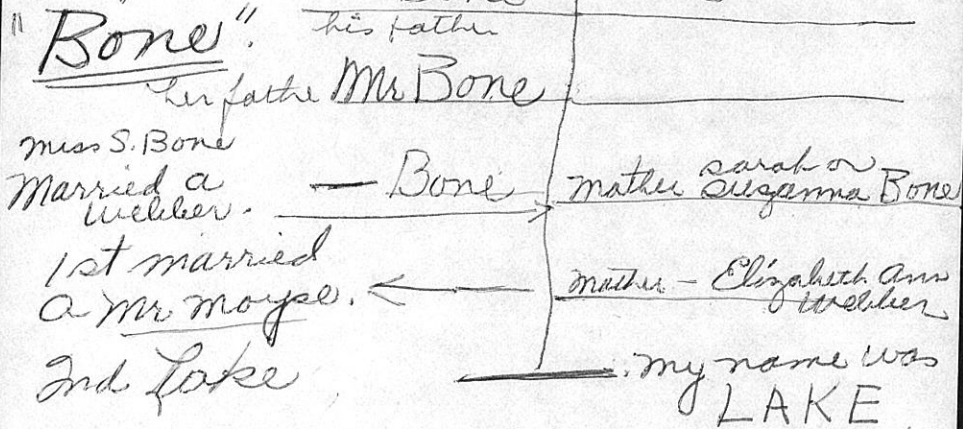 "Bone".
his father
her fathe Mr Bone
Miss S. Bone
Married a — Bone
Webber.
mother sarah or
Suzanna Bone
1st married
a Mr Moyse.
mother - Elizabeth Ann
Webber
2nd Lake
my name was
LAKE